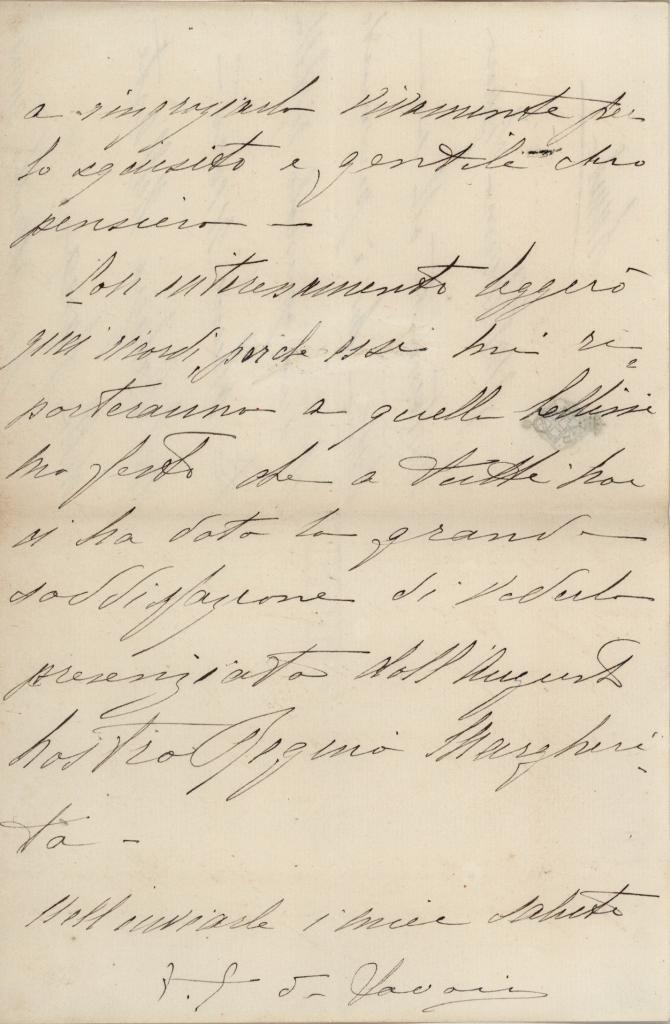 a ringraziarlo vivamente per
lo squisito e gentile
pensiero –
Con interessamento leggerò
quei ricordi, perche essi mi ri=
porteranno a quella bellissi
ma festa che a tutti noi
ci ha dato la grande
soddisfazione di vederla
presenziata dall'Augusta
nostra Regina Margheri-
ta –
Nell'inviarle i miei saluti
di Savoia